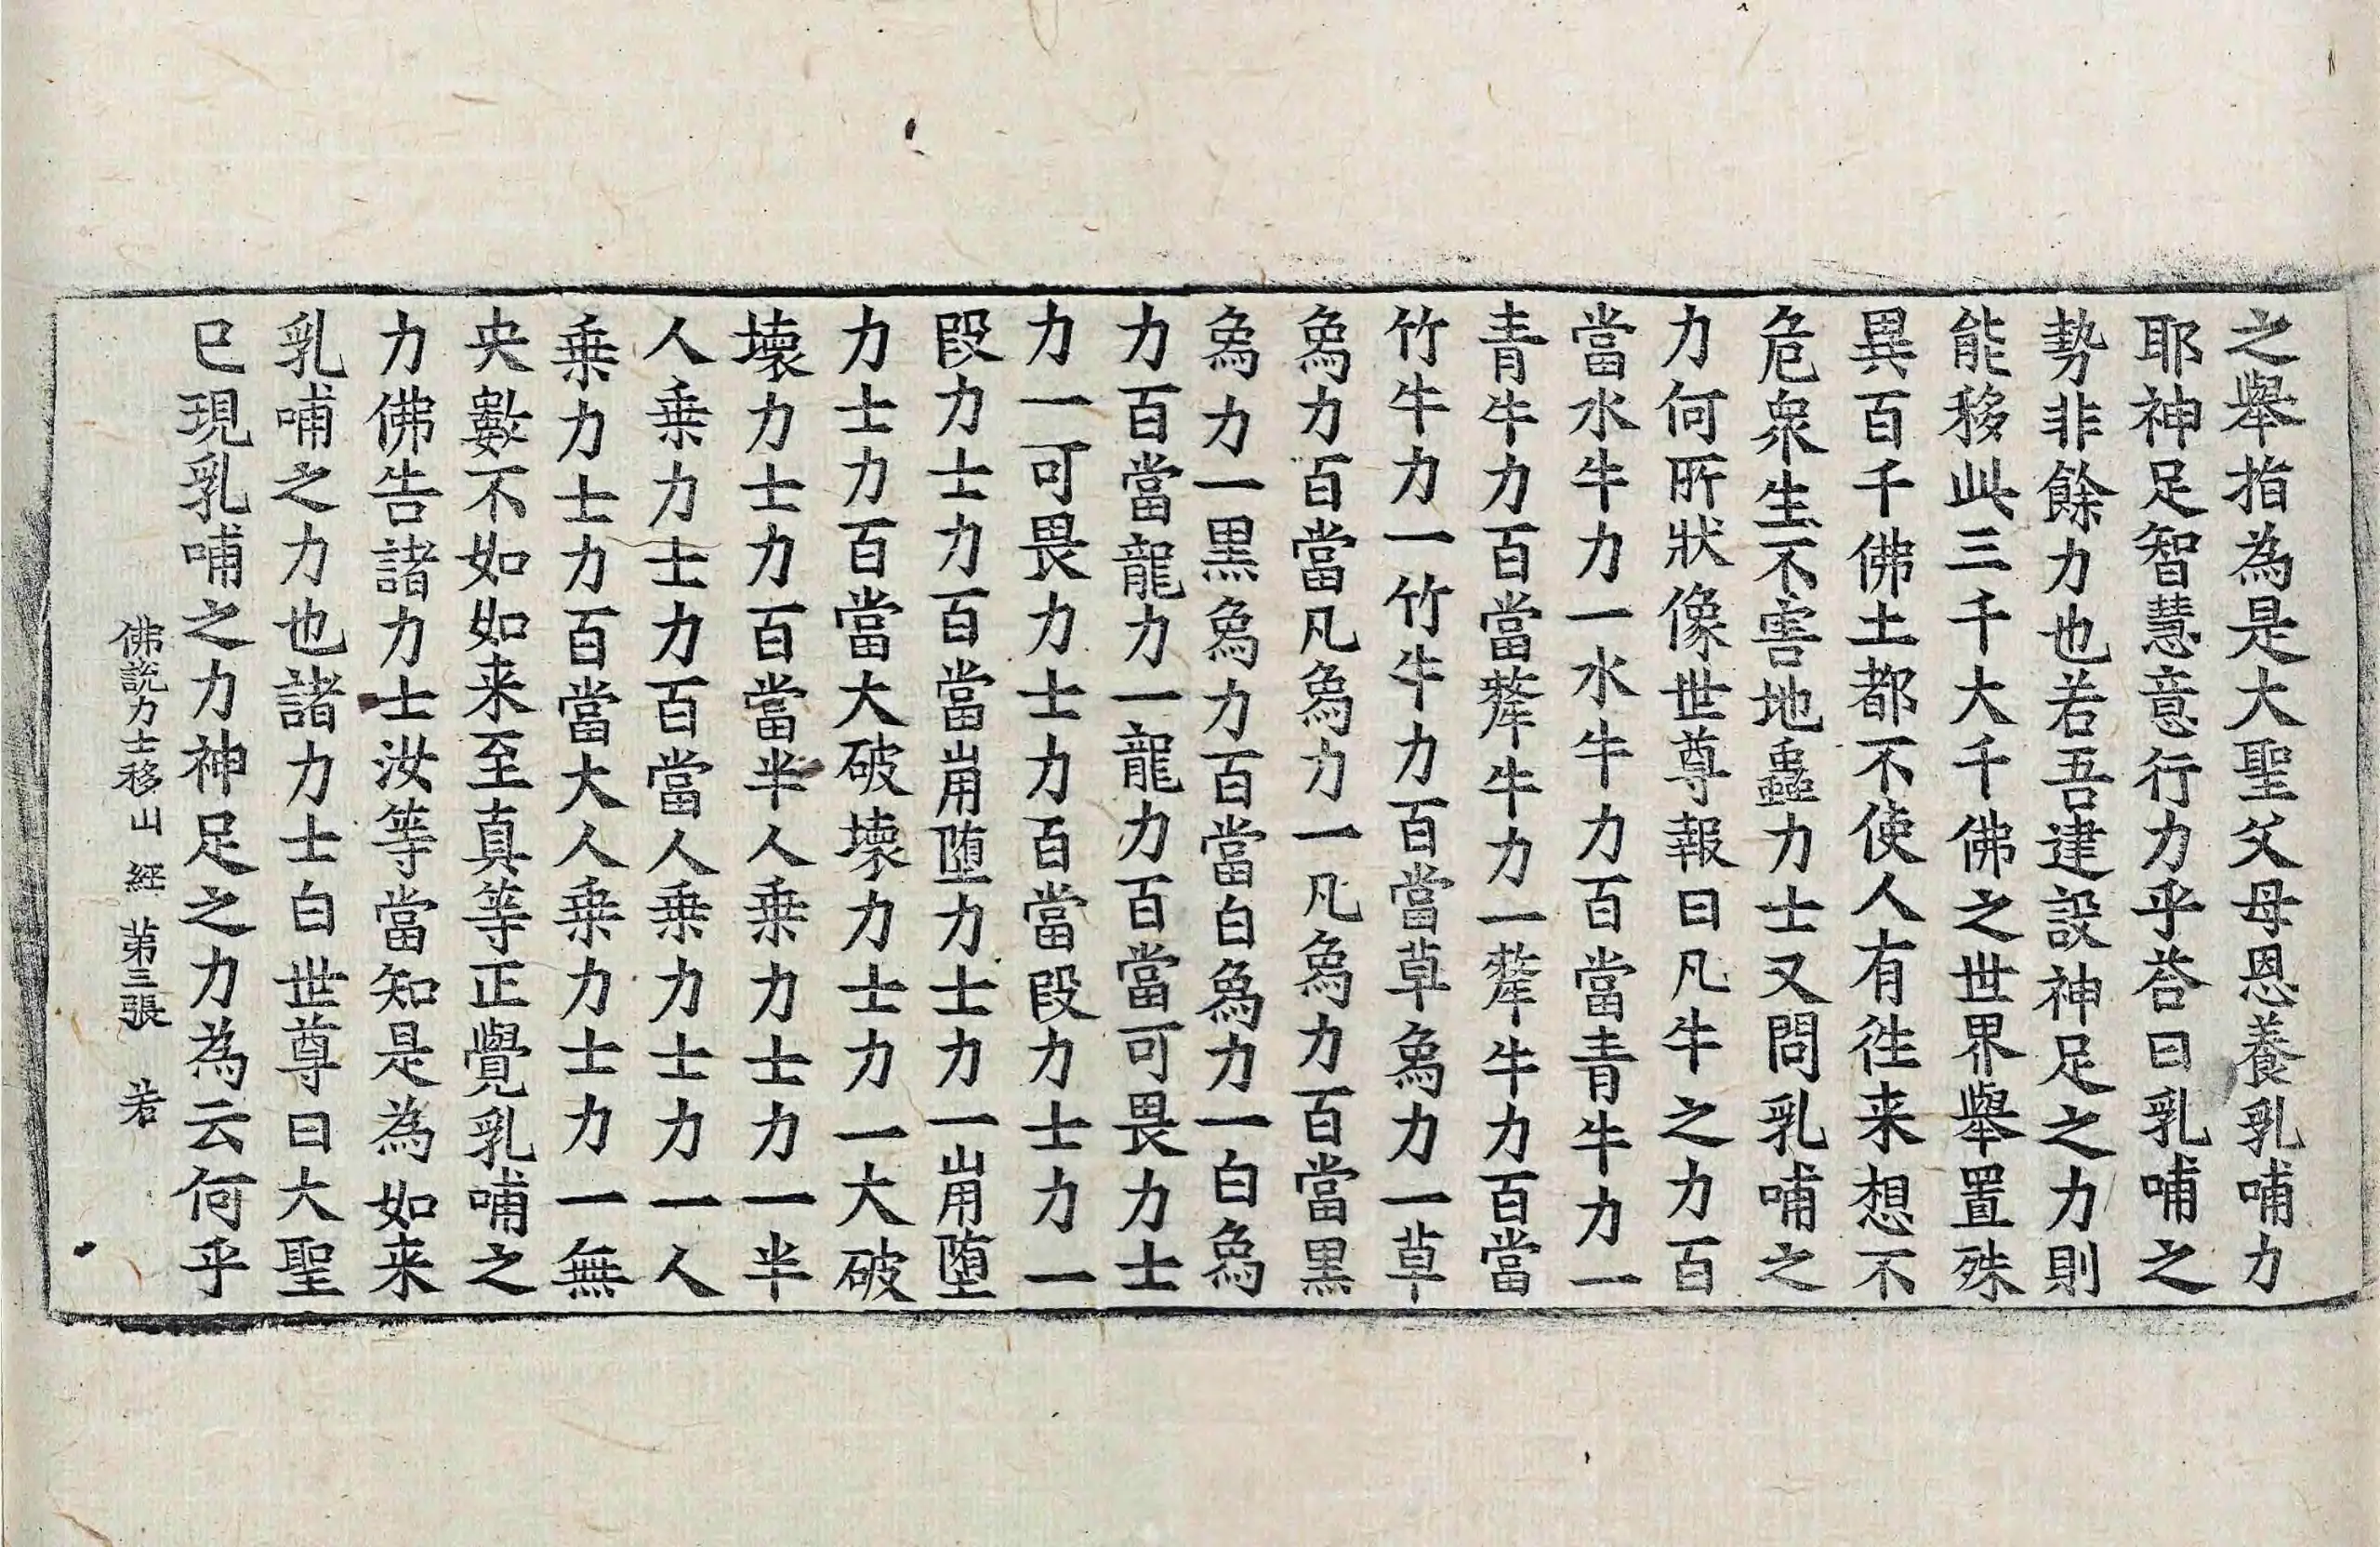 之舉指為是大聖父母恩養乳哺力
耶神足智慧意行力乎荅曰乳哺之
勢非餘力也若吾建設神足之力則
能移此三千大千佛之世界舉置殊
異百千佛土都不使人有徃来想不
危衆生不害地蟲力士又問乳哺之
力何所狀像世尊報曰凡牛之力百
當水牛力一水牛力百當青牛力一
青牛力百當犛牛力一犛牛力百當
竹牛力一竹牛力百當草象力一草
象力百當凡象力一凡象力百當黑
象力一黑象力百當白象力一白象
力百當龍力一龍力百當可畏力士
力一可畏力士力百當段力士力一
段力士力百當崩堕力士力一崩堕
力士力百當大破壊力士力一大破
壊力士力百當半人乗力士力一半
人乗力士力百當人乗力士力一人
乗力士力百當大人乗力士力一無
央數不如如来至真等正覺乳哺之
力佛告諸力士汝等當知是為如来
乳哺之力也諸力士白世尊曰大聖
已現乳哺之力神足之力為云何乎
佛說力士移山經 第三張 若